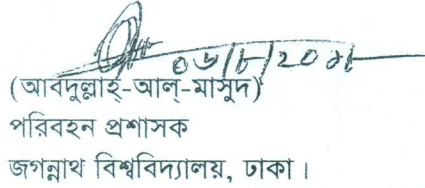 (আবদুল্লাহ্-আল্-মাসুদ)
পরিবহন প্রশাসক
জগন্নাথ বিশ্ববিদ্যালয়, ঢাকা।